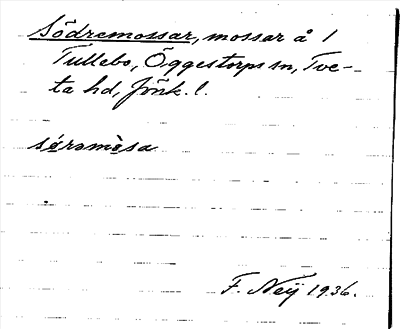 Södremossar, mossar å 1
Tullebo, Öggestorps sn, Tve-
ta hd, Jönk. l.
sørəmòsa
F. Neÿ 1936.